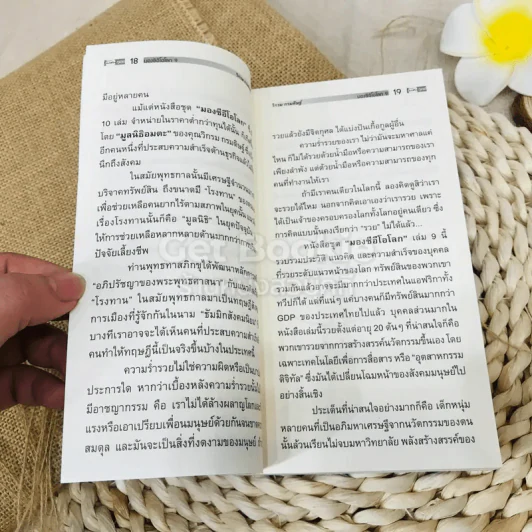 18
มีอยู่หลายคน
แม้แต่หนังสือชุด "มองซีอีโอโลก"
10 เล่ม จำหน่ายในราคาต่ำกว่าทุนได้นั้น
โดย "มูลนิธิอมตะ" ของคุณวิกรม
อีกคนหนึ่งที่ประสบความสำเร็จด้านธุรกิจ
นึกถึงสังคม
ในสมัยพุทธกาลนั้นมีเศรษฐีจำนวน
บริจาคทรัพย์สิน ถึงขนาดมี "โรงทาน"
เพื่อช่วยเหลือคนยากไร้ตามสภาพในยุคนั้น
เรื่องโรงทานนั้นก็คือ "มูลนิธิ" ในยุคปัจจุบัน
ให้การช่วยเหลือหลากหลายด้านมากกว่า
ปัจจัยเลี้ยงชีพ
ท่านพุทธทาสภิกขุได้พัฒนาหลัก
"อภิปรัชญาของพระพุทธศาสนา"
"โรงทาน" ในสมัยพุทธกาลมาเป็นทฤษฎี
การเมืองที่รู้จักกันในนาม "ธัมมิกสังคมนิยม"
บางทีเราอาจจะได้เห็นคนที่ประสบความสำเร็จ
คนทำให้ทฤษฎีนี้เป็นจริงขึ้นบ้างในประเทศนี้
ความร่ำรวยไม่ใช่ความผิดหรือเป็น
ประการใด หากว่าเบื้องหลังความร่ำรวยนั้น
มีอาชญากรรม คือ เราไม่ได้ล้างผลาญโลก
แรงหรือเอาเปรียบเพื่อนมนุษย์ด้วยกันจน
สมดุล และมันจะเป็นสิ่งที่งดงามของมนุษย์
มองซีอีโอโลก 9
19
รวยแล้วยังมีจิตกุศล ได้แบ่งปันเกื้อกูลผู้อื่น
ความร่ำรวยของเรา ไม่ว่ามันจะมหาศาลแค่
ไหน ก็ไม่ได้รวยด้วยน้ำมือหรือความสามารถของเรา
เพียงลำพัง แต่ด้วยน้ำมือหรือความสามารถของทุก
คนที่ทำงานให้เรา
ถ้ามีเราคนเดียวในโลกนี้ ลองคิดดูสิว่าเรา
จะรวยได้ไหม นอกจากคิดเอาเองว่าเรารวย เพราะ
ได้เป็นเจ้าของครอบครองโลกทั้งโลกอยู่คนเดียว ซึ่ง
การคิดแบบนั้นคงเรียกว่า "รวย" ไม่ได้แล้ว...
หนังสือชุด "มองซีอีโอโลก" เล่ม 9 นี้
รวบรวมประวัติ แนวคิด และความสำเร็จของบุคคล
ที่รวยระดับแนวหน้าของโลก ทรัพย์สินของพวกเขา
รวมกันแล้วอาจจะมีมากกว่าประเทศในแอฟริกาทั้ง
ทวีปก็ได้ แต่ที่แน่ๆ แค่บางคนก็มีทรัพย์สินมากกว่า
GDP ของประเทศไทยไปแล้ว บุคคลส่วนมากใน
หนังสือเล่มนี้รวยตั้งแต่อายุ 20 ต้นๆ ที่น่าสนใจก็คือ
พวกเขารวยจากการสร้างสรรค์นวัตกรรมขึ้นเอง โดย
เฉพาะเทคโนโลยีเพื่อการสื่อสาร หรือ "อุตสาหกรรม
ดิจิทัล" ซึ่งมันได้เปลี่ยนโฉมหน้าของสังคมมนุษย์ไป
อย่างสิ้นเชิง
ประเด็นที่น่าสนใจอย่างมากก็คือ เด็กหนุ่ม
หลายคนที่เป็นอภิมหาเศรษฐีจากนวัตกรรมของตน
นั้นล้วนเรียนไม่จบมหาวิทยาลัย พลังสร้างสรรค์ของ